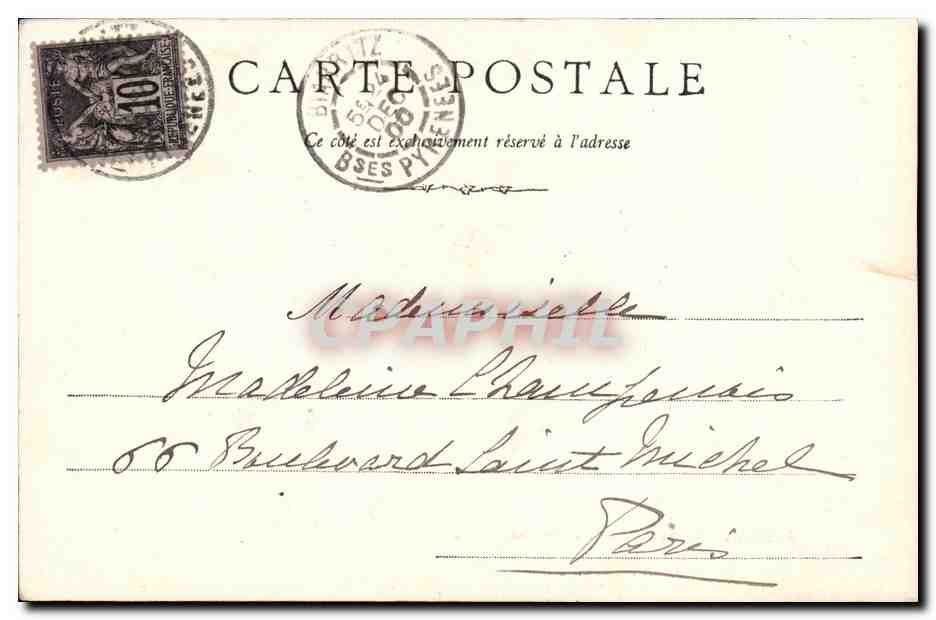 CARTE POSTALE
Ce côté est exclusivement réservé à l'adresse
POSTES
10
RÉPUBLIQUE FRANÇAISE
BIARRITZ
DEC
00
BSES PYRENEES
CPAPHIL
Mademoiselle
Madeleine Champenois
66 Boulevard Saint Michel
Paris